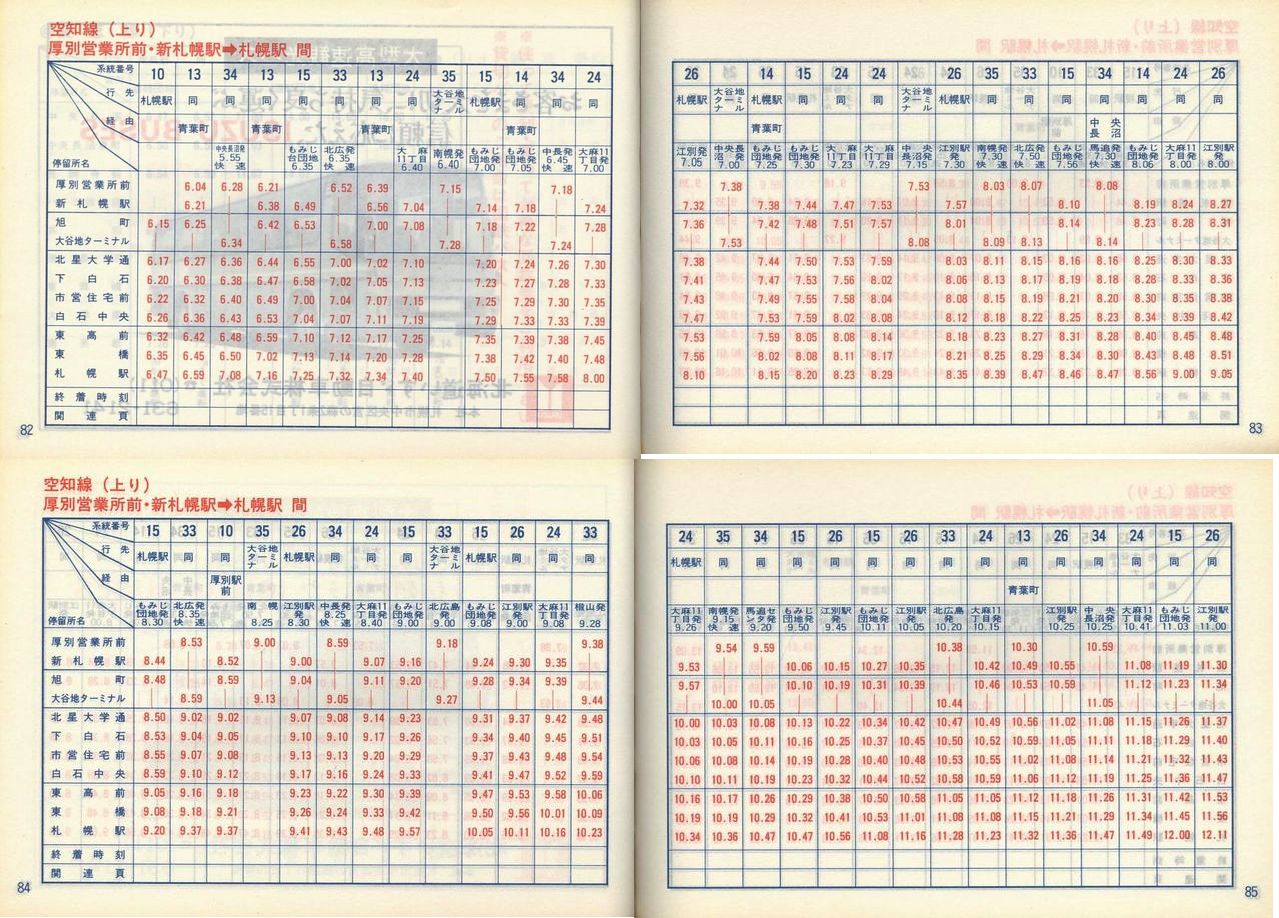 空知線（上り）
厚別営業所前・新札幌駅➡札幌駅 間
系統番号 10 13 34 13 15 33 13 24 35 15 14 34 24
行先 札幌駅 同 同 同 同 同 同 同 大谷地ターミナル 札幌駅 同 同 同
経由 青葉町 青葉町 青葉町 青葉町
停留所名 中央長沼発5.55快速 もみじ台団地6.35 北広発6.35快速 大麻11丁目6.40 南幌発6.40 もみじ団地発7.00 もみじ団地発7.05 中長発6.45快速 大麻11丁目発7.00
厚別営業所前 6.04 6.28 6.21 6.52 6.39 7.15 7.18
新札幌駅 6.21 6.38 6.49 6.56 7.04 7.14 7.18 7.24
旭町 6.15 6.25 6.42 6.53 7.00 7.08 7.18 7.22 7.28
大谷地ターミナル 6.34 6.58 7.28 7.24
北星大学通 6.17 6.27 6.36 6.44 6.55 7.00 7.02 7.10 7.20 7.24 7.26 7.30
下白石 6.20 6.30 6.38 6.47 6.58 7.02 7.05 7.13 7.23 7.27 7.28 7.33
市営住宅前 6.22 6.32 6.40 6.49 7.00 7.04 7.07 7.15 7.25 7.29 7.30 7.35
白石中央 6.26 6.36 6.43 6.53 7.04 7.07 7.11 7.19 7.29 7.33 7.33 7.39
東高前 6.32 6.42 6.48 6.59 7.10 7.12 7.17 7.25 7.35 7.39 7.38 7.45
東橋 6.35 6.45 6.50 7.02 7.13 7.14 7.20 7.28 7.38 7.42 7.40 7.48
札幌駅 6.47 6.59 7.08 7.16 7.25 7.32 7.34 7.40 7.50 7.55 7.58 8.00
終着時刻
関連頁
82
26 14 15 24 24 26 35 33 15 34 14 24 26
札幌駅 大谷地ターミナル 札幌駅 同 同 同 大谷地ターミナル 札幌駅 同 同 同 同 同 同 同
青葉町 中央長沼
江別発7.05 中央長沼発7.00 もみじ団地発7.25 もみじ団地発7.30 大麻11丁目7.23 大麻11丁目7.29 中央長沼発7.15 江別駅発7.30 南幌発7.30快速 北広発7.50快速 もみじ団地発7.56 馬追発7.30快速 もみじ団地発8.06 大麻11丁目発8.00 江別駅発8.00
7.38 7.53 8.03 8.07 8.08
7.32 7.38 7.44 7.47 7.53 7.57 8.10 8.19 8.24 8.27
7.36 7.42 7.48 7.51 7.57 8.01 8.14 8.23 8.28 8.31
7.53 8.08 8.09 8.13 8.14
7.38 7.44 7.50 7.53 7.59 8.03 8.11 8.15 8.16 8.16 8.25 8.30 8.33
7.41 7.47 7.53 7.56 8.02 8.06 8.13 8.17 8.19 8.18 8.28 8.33 8.36
7.43 7.49 7.55 7.58 8.04 8.08 8.15 8.19 8.21 8.20 8.30 8.35 8.38
7.47 7.53 7.59 8.02 8.08 8.12 8.18 8.22 8.25 8.23 8.34 8.39 8.42
7.53 7.59 8.05 8.08 8.14 8.18 8.23 8.27 8.31 8.28 8.40 8.45 8.48
7.56 8.02 8.08 8.11 8.17 8.21 8.25 8.29 8.34 8.30 8.43 8.48 8.51
8.10 8.15 8.20 8.23 8.29 8.35 8.39 8.47 8.46 8.47 8.56 9.00 9.05
83
空知線（上り）
厚別営業所前・新札幌駅➡札幌駅 間
系統番号 15 33 10 35 26 34 24 15 33 15 26 24 33
行先 札幌駅 同 同 大谷地ターミナル 札幌駅 同 同 同 大谷地ターミナル 札幌駅 同 同 同
経由 厚別駅前
停留所名 もみじ団地発8.30 北広発8.35快速 南幌8.25 江別駅発8.30 中長発8.25快速 大麻11丁目発8.40 もみじ団地発9.00 北広島発9.00 もみじ団地発9.08 江別駅発9.00 大麻11丁目発9.08 椴山発9.28
厚別営業所前 8.53 9.00 8.59 9.18 9.38
新札幌駅 8.44 8.52 9.00 9.07 9.16 9.24 9.30 9.35
旭町 8.48 8.59 9.04 9.11 9.20 9.28 9.34 9.39
大谷地ターミナル 8.59 9.13 9.05 9.27 9.44
北星大学通 8.50 9.02 9.02 9.07 9.08 9.14 9.23 9.31 9.37 9.42 9.48
下白石 8.53 9.04 9.05 9.10 9.10 9.17 9.26 9.34 9.40 9.45 9.51
市営住宅前 8.55 9.07 9.08 9.13 9.13 9.20 9.29 9.37 9.43 9.48 9.54
白石中央 8.59 9.10 9.12 9.17 9.16 9.24 9.33 9.41 9.47 9.52 9.59
東高前 9.05 9.16 9.18 9.23 9.22 9.30 9.39 9.47 9.53 9.58 10.06
東橋 9.08 9.18 9.21 9.26 9.24 9.33 9.42 9.50 9.56 10.01 10.09
札幌駅 9.20 9.37 9.37 9.41 9.43 9.48 9.57 10.05 10.11 10.16 10.23
終着時刻
関連頁
84
24 35 34 15 26 15 26 33 24 13 26 34 24 15 26
札幌駅 同 同 同 同 同 同 同 同 同 同 同 同 同 同
青葉町
大麻11丁目発9.26 南幌発9.15快速 馬追センタ発9.20 もみじ団地発9.50 江別駅発9.45 もみじ団地発10.11 江別駅発10.05 北広島発10.20 大麻11丁目発10.15 江別駅発10.25 中央長発10.25 大麻11丁目発10.41 もみじ団地発11.03 江別駅発11.00
9.54 9.59 10.38 10.30 10.59
9.53 10.06 10.15 10.27 10.35 10.42 10.49 10.55 11.08 11.19 11.30
9.57 10.10 10.19 10.31 10.39 10.46 10.53 10.59 11.12 11.23 11.34
10.00 10.05 10.44 11.05
10.00 10.03 10.08 10.13 10.22 10.34 10.42 10.47 10.49 10.56 11.02 11.08 11.15 11.26 11.37
10.03 10.05 10.11 10.16 10.25 10.37 10.45 10.50 10.52 10.59 11.05 11.11 11.18 11.29 11.40
10.06 10.08 10.14 10.19 10.28 10.40 10.48 10.53 10.55 11.02 11.08 11.14 11.21 11.32 11.43
10.10 10.11 10.19 10.23 10.32 10.44 10.52 10.58 10.59 11.06 11.12 11.19 11.25 11.36 11.47
10.16 10.17 10.26 10.29 10.38 10.50 10.58 11.05 11.05 11.12 11.18 11.26 11.31 11.42 11.53
10.19 10.19 10.29 10.32 10.41 10.53 11.01 11.08 11.08 11.15 11.21 11.29 11.34 11.45 11.56
10.34 10.36 10.47 10.47 10.56 11.08 11.16 11.28 11.23 11.32 11.36 11.47 11.49 12.00 12.11
85